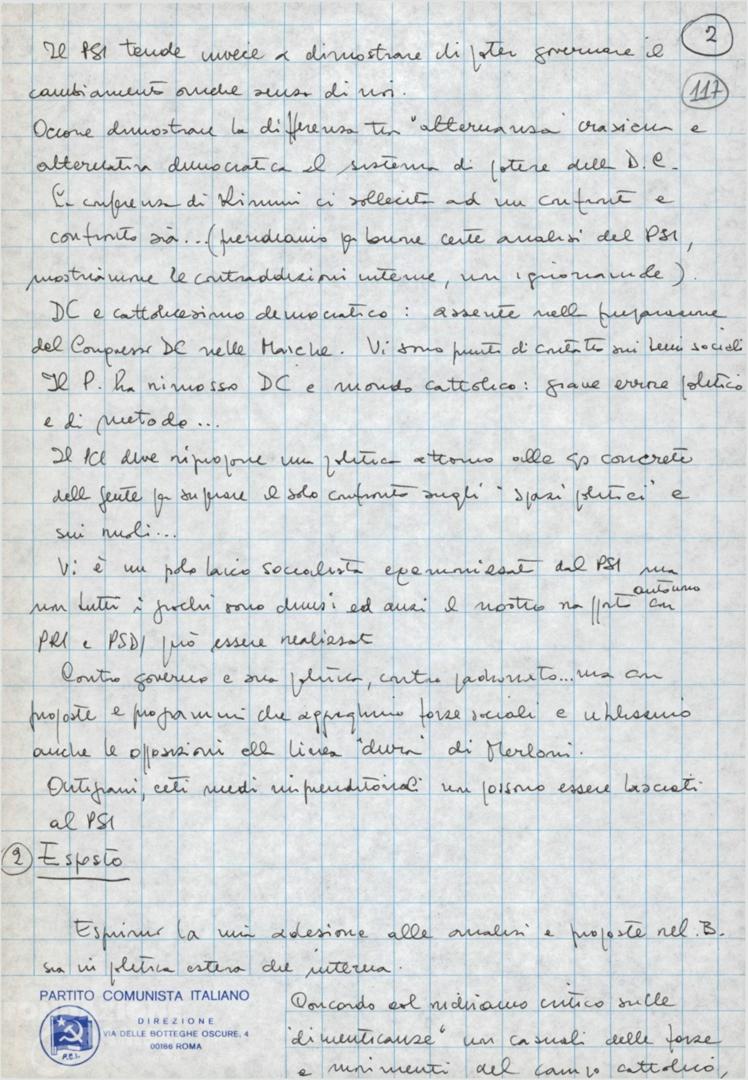 2
Il PSI tende invece a dimostrare di poter governare il
117
cambiamento anche senza di noi.
Occorre dimostrare la differenza tra "alternanza" craxiana e
alternativa democratica al sistema di potere della D.C.
La conferenza di Rimini ci sollecita ad un confronto e
confronto sia... (prendiamo per buone certe analisi del PSI,
mostriamone le contraddizioni interne, non ignoriamole).
DC e cattolicesimo democratico: assente nella preparazione
del Congresso DC nelle Marche. Vi sono punti di contatto sui temi sociali
Il P. ha rimosso DC e mondo cattolico: grave errore politico
e di metodo...
Il PCI deve riproporre una politica attorno alle qs concrete
della gente per superare il solo confronto sugli "spazi politici" e
sui ruoli...
Vi è un polo laico socialista egemonizzato dal PSI ma
non tutti i giochi sono chiusi ed anzi il nostro rapporto autonomo con
PRI e PSDI può essere realizzato
Contro governo e sua politica, contro padronato... ma con
proposte e programmi che aggreghino forze sociali e utilizzino
anche le opposizioni alla linea "dura" di Merloni.
Artigiani, ceti medi imprenditoriali non possono essere lasciati
al PSI
2 Esposto
Esprimo la mia adesione alle analisi e proposte nel B.
sia in politica estera che interna.
Concordo col richiamo critico sulle
"dimenticanze" non casuali delle forze
e movimenti del campo cattolico,
PARTITO COMUNISTA ITALIANO
DIREZIONE
VIA DELLE BOTTEGHE OSCURE, 4
00186 ROMA
P.C.I.